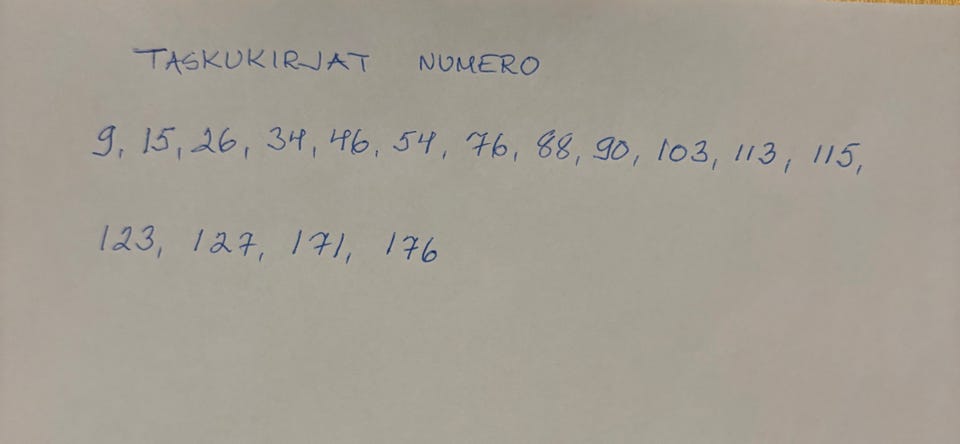 TASKUKIRJAT NUMERO
9, 15, 26, 34, 46, 54, 76, 88, 90, 103, 113, 115,
123, 127, 171, 176